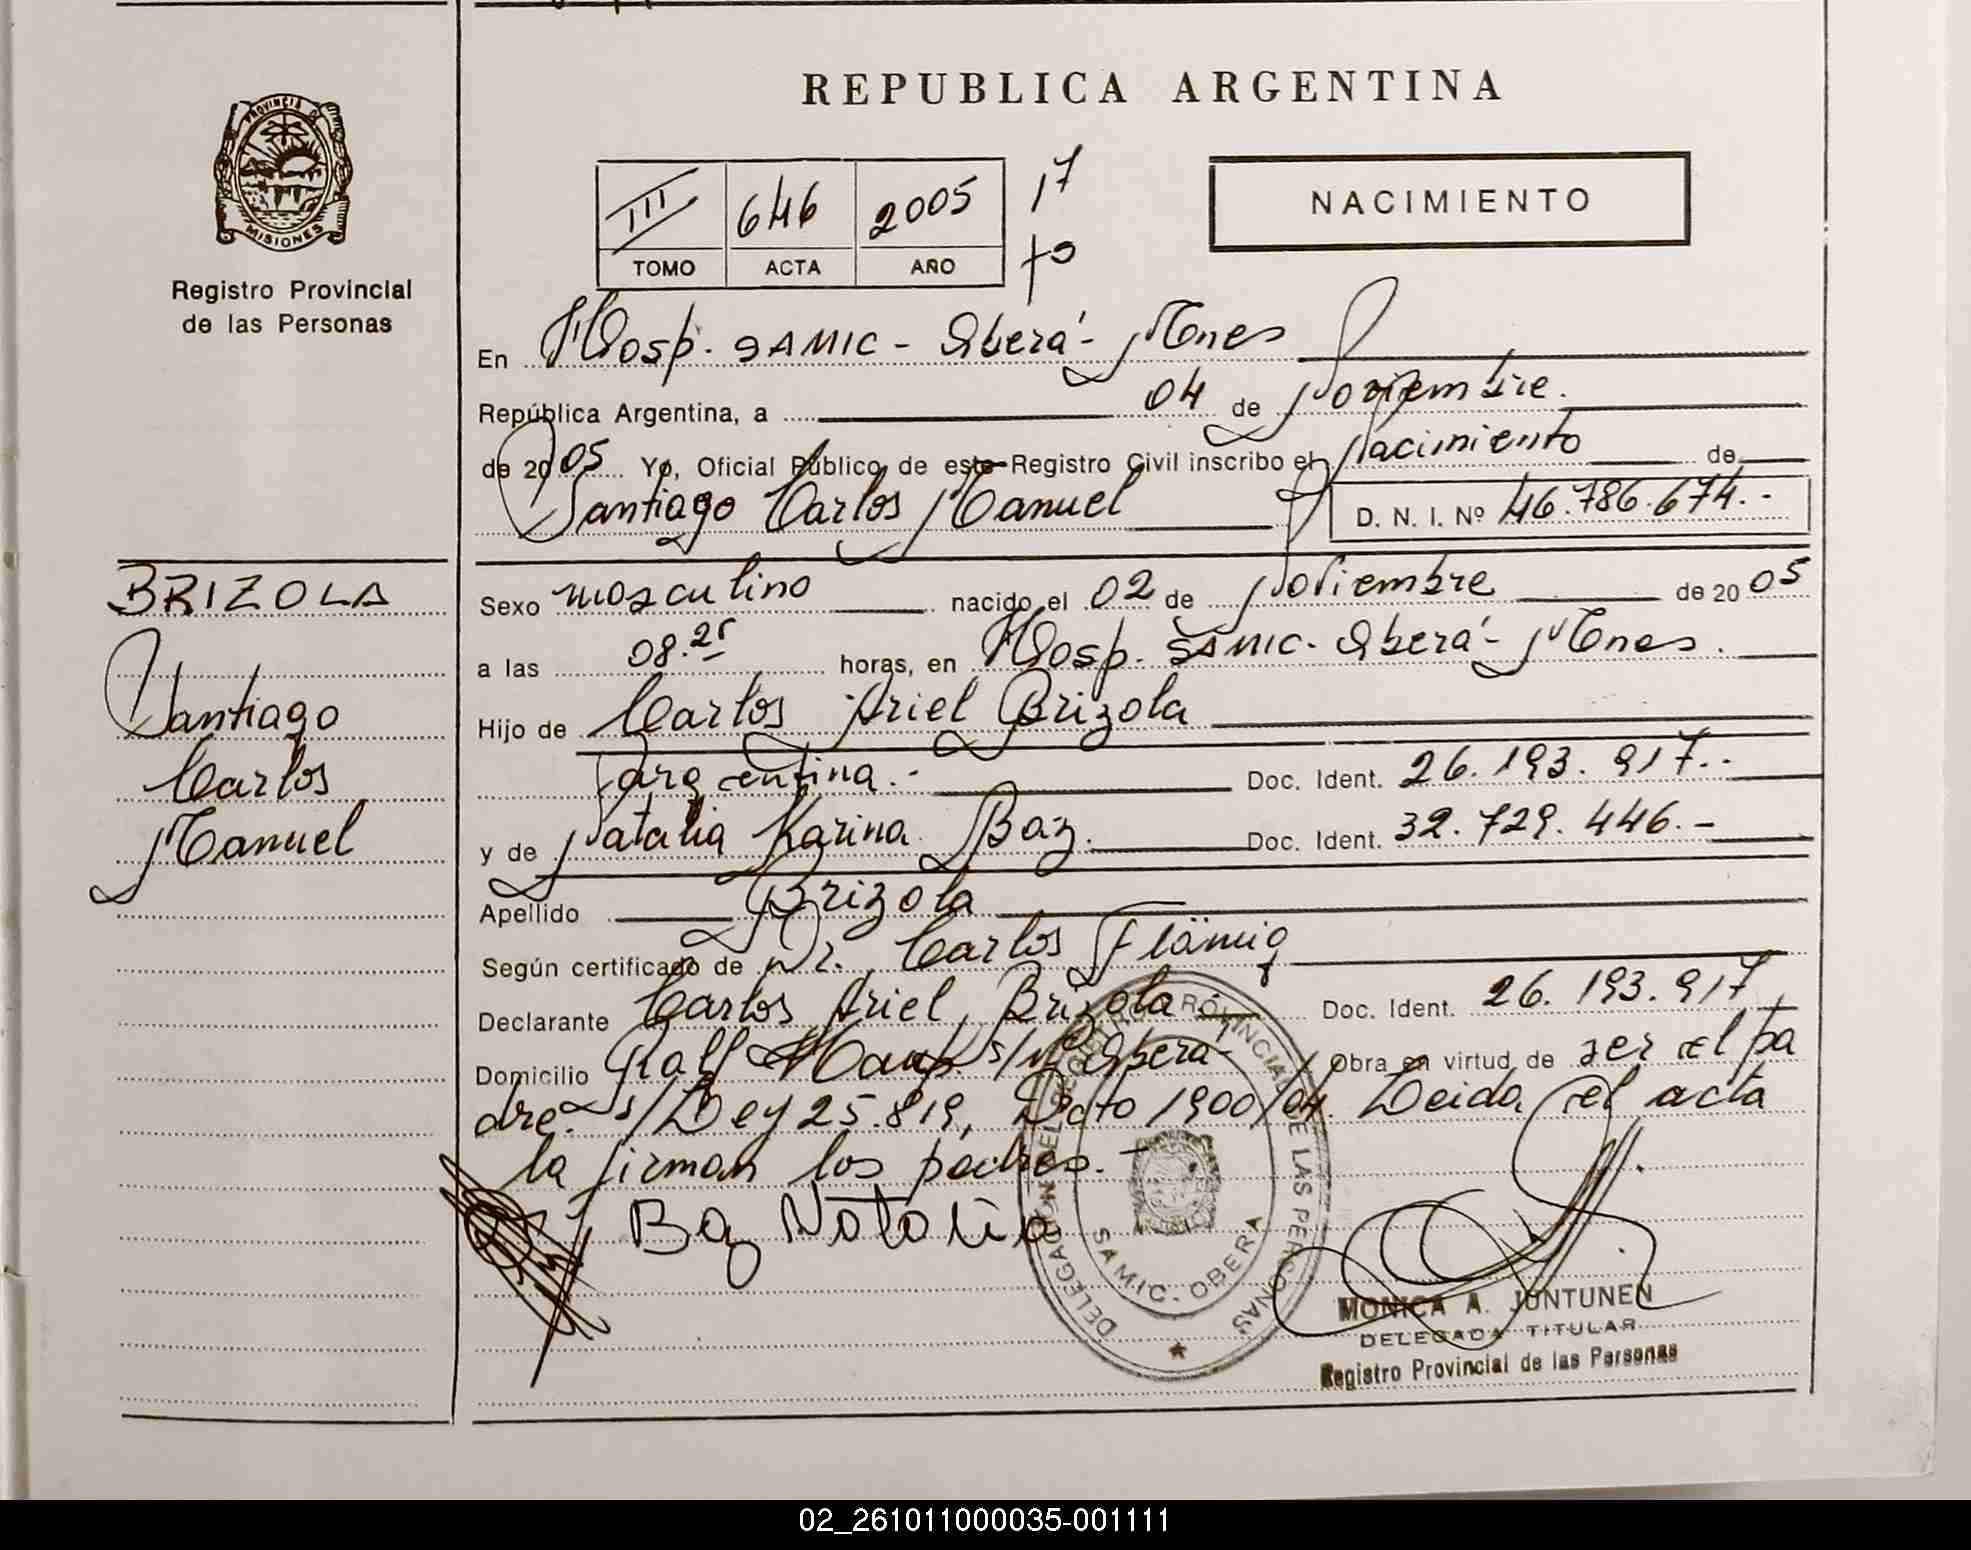 REPUBLICA ARGENTINA
PROVINCIA DE
MISIONES
Registro Provincial
de las Personas
III 646 2005 17
TOMO ACTA AÑO
NACIMIENTO
En Hosp. SAMIC - Oberá - Mnes
República Argentina, a 04 de Noviembre.
de 2005 Yo, Oficial Público de este Registro Civil inscribo el Nacimiento de
Santiago Carlos Manuel D. N. I. Nº 46.786.674.-
BRIZOLA
Santiago
Carlos
Manuel
Sexo masculino nacido el 02 de Noviembre de 2005
a las 08.25 horas, en Hosp. SAMIC - Oberá - Mnes.
Hijo de Carlos Ariel Brizola
argentina.- Doc. Ident. 26.193.917.-
y de Natalia Karina Baz. Doc. Ident. 32.729.446.-
Apellido Brizola
Según certificado de Dr. Carlos Flämig
Declarante Carlos Ariel Brizola Doc. Ident. 26.193.917
Domicilio s/n Oberá - Obra en virtud de ser el pa
dre. s/Ley 25.819, Dcto 1900/04. Leida el acta
la firman los padres.-
Baz Natalia
DELEGACION DEL REGISTRO PROVINCIAL DE LAS PERSONAS
SAMIC - OBERA
MONICA A. JUNTUNEN
DELEGADA TITULAR
Registro Provincial de las Personas
02_261011000035-001111